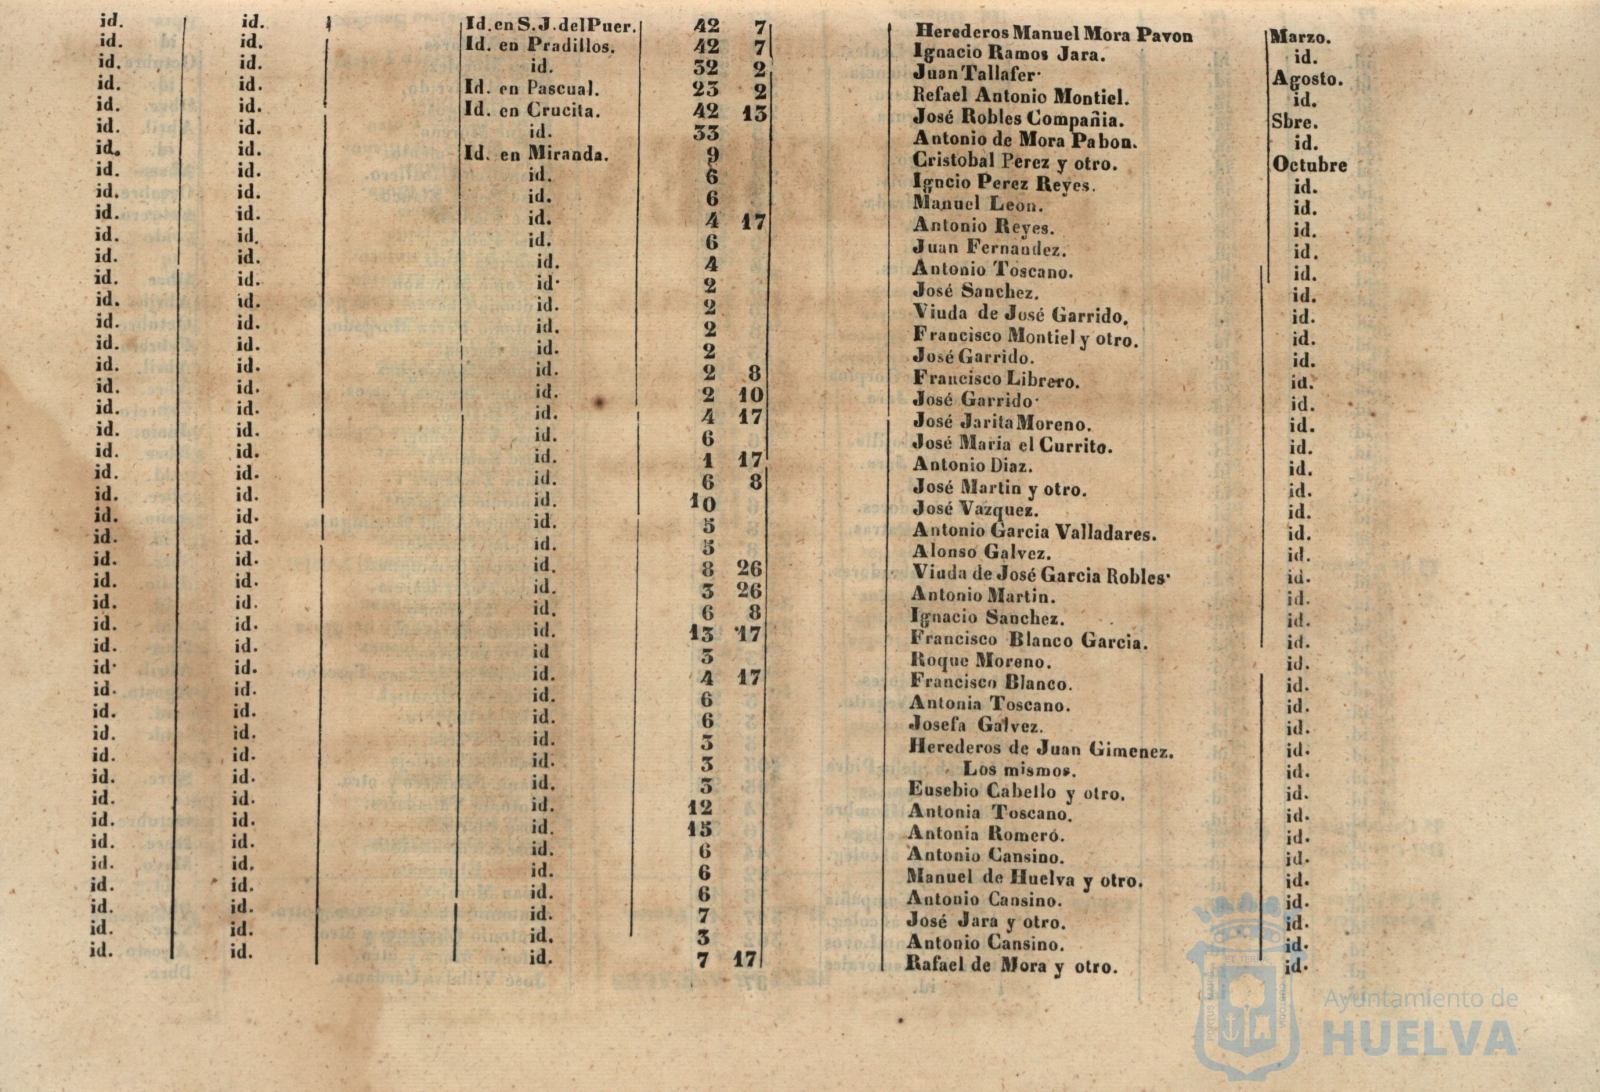 id. id. Id. en S. J. del Puer. 42 7 Herederos Manuel Mora Pavon Marzo.
id. id. Id. en Pradillos. 42 7 Ignacio Ramos Jara. id.
id. id. id. 32 2 Juan Tallafer· Agosto.
id. id. Id. en Pascual. 23 2 Refael Antonio Montiel. id.
id. id. Id. en Crucita. 42 13 José Robles Compañia. Sbre.
id. id. id. 33 Antonio de Mora Pabon. id.
id. id. Id. en Miranda. 9 Cristobal Perez y otro. Octubre
id. id. id. 6 Igncio Perez Reyes. id.
id. id. id. 6 Manuel Leon. id.
id. id. id. 4 17 Antonio Reyes. id.
id. id. id. 6 Juan Fernandez. id.
id. id. id. 4 Antonio Toscano. id.
id. id. id· 2 José Sanchez. id.
id. id. id. 2 Viuda de José Garrido. id.
id. id. id. 2 Francisco Montiel y otro. id.
id. id. id. 2 José Garrido. id.
id. id. id. 2 8 Francisco Librero. id.
id. id. id. 2 10 José Garrido· id.
id. id. id. 4 17 José Jarita Moreno. id.
id. id. id. 6 José Maria el Currito. id.
id. id. id. 1 17 Antonio Diaz. id.
id. id. id. 6 8 José Martin y otro. id.
id. id. id. 10 José Vazquez. id.
id. id. id. 5 Antonio Garcia Valladares. id.
id. id. id. 5 Alonso Galvez. id.
id. id. id. 8 26 Viuda de José Garcia Robles· id.
id. id. id. 3 26 Antonio Martin. id.
id. id. id. 6 8 Ignacio Sanchez. id.
id. id. id. 13 17 Francisco Blanco Garcia. id.
id. id. id 3 Roque Moreno. id.
id· id. id. 4 17 Francisco Blanco. id.
id. id. id. 6 Antonia Toscano. id.
id. id. id. 6 Josefa Galvez. id.
id. id. id. 3 Herederos de Juan Gimenez. id.
id. id. id. 3 Los mismos. id.
id. id. id. 3 Eusebio Cabello y otro. id.
id. id. id. 12 Antonia Toscano. id.
id. id. id. 15 Antonia Romeró. id.
id. id. id. 6 Antonio Cansino. id.
id. id. id. 6 Manuel de Huelva y otro. id.
id. id. id. 6 Antonio Cansino. id.
id. id. id. 7 José Jara y otro. id.
id. id. id. 3 Antonio Cansino. id.
id. id. id. 7 17 Rafael de Mora y otro. id.
Ayuntamiento de
HUELVA